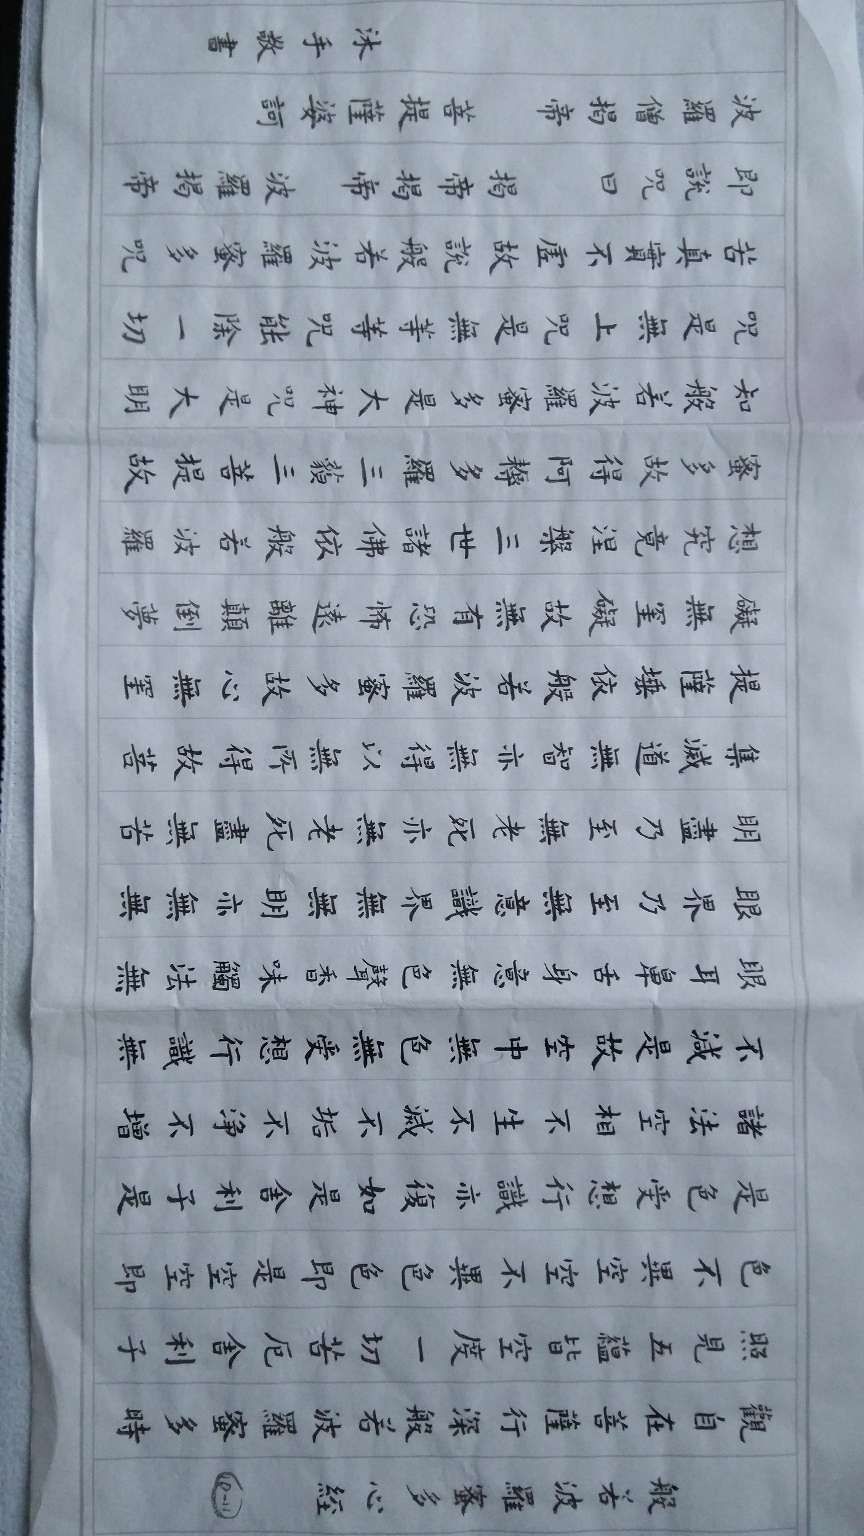 般若波羅蜜多心経
觀自在菩薩行深般若波羅蜜多時
照見五蘊皆空度一切苦厄舍利子
色不異空空不異色色即是空空即
是色受想行識亦復如是舍利子是
諸法空相不生不滅不垢不淨不增
不減是故空中無色無受想行識無
眼耳鼻舌身意無色聲香味觸法無
眼界乃至無意識界無無明亦無無
明盡乃至無老死亦無老死盡無苦
集滅道無智亦無得以無所得故菩
提薩埵依般若波羅蜜多故心無罣
礙無罣礙故無有恐怖遠離顛倒夢
想究竟涅槃三世諸佛依般若波羅
蜜多故得阿耨多羅三藐三菩提故
知般若波羅蜜多是大神呪是大明
呪是無上呪是無等等呪能除一切
苦真實不虛故說般若波羅蜜多呪
即說呪曰 揭帝揭帝 波羅揭帝
波羅僧揭帝 菩提薩婆訶
沐手敬書